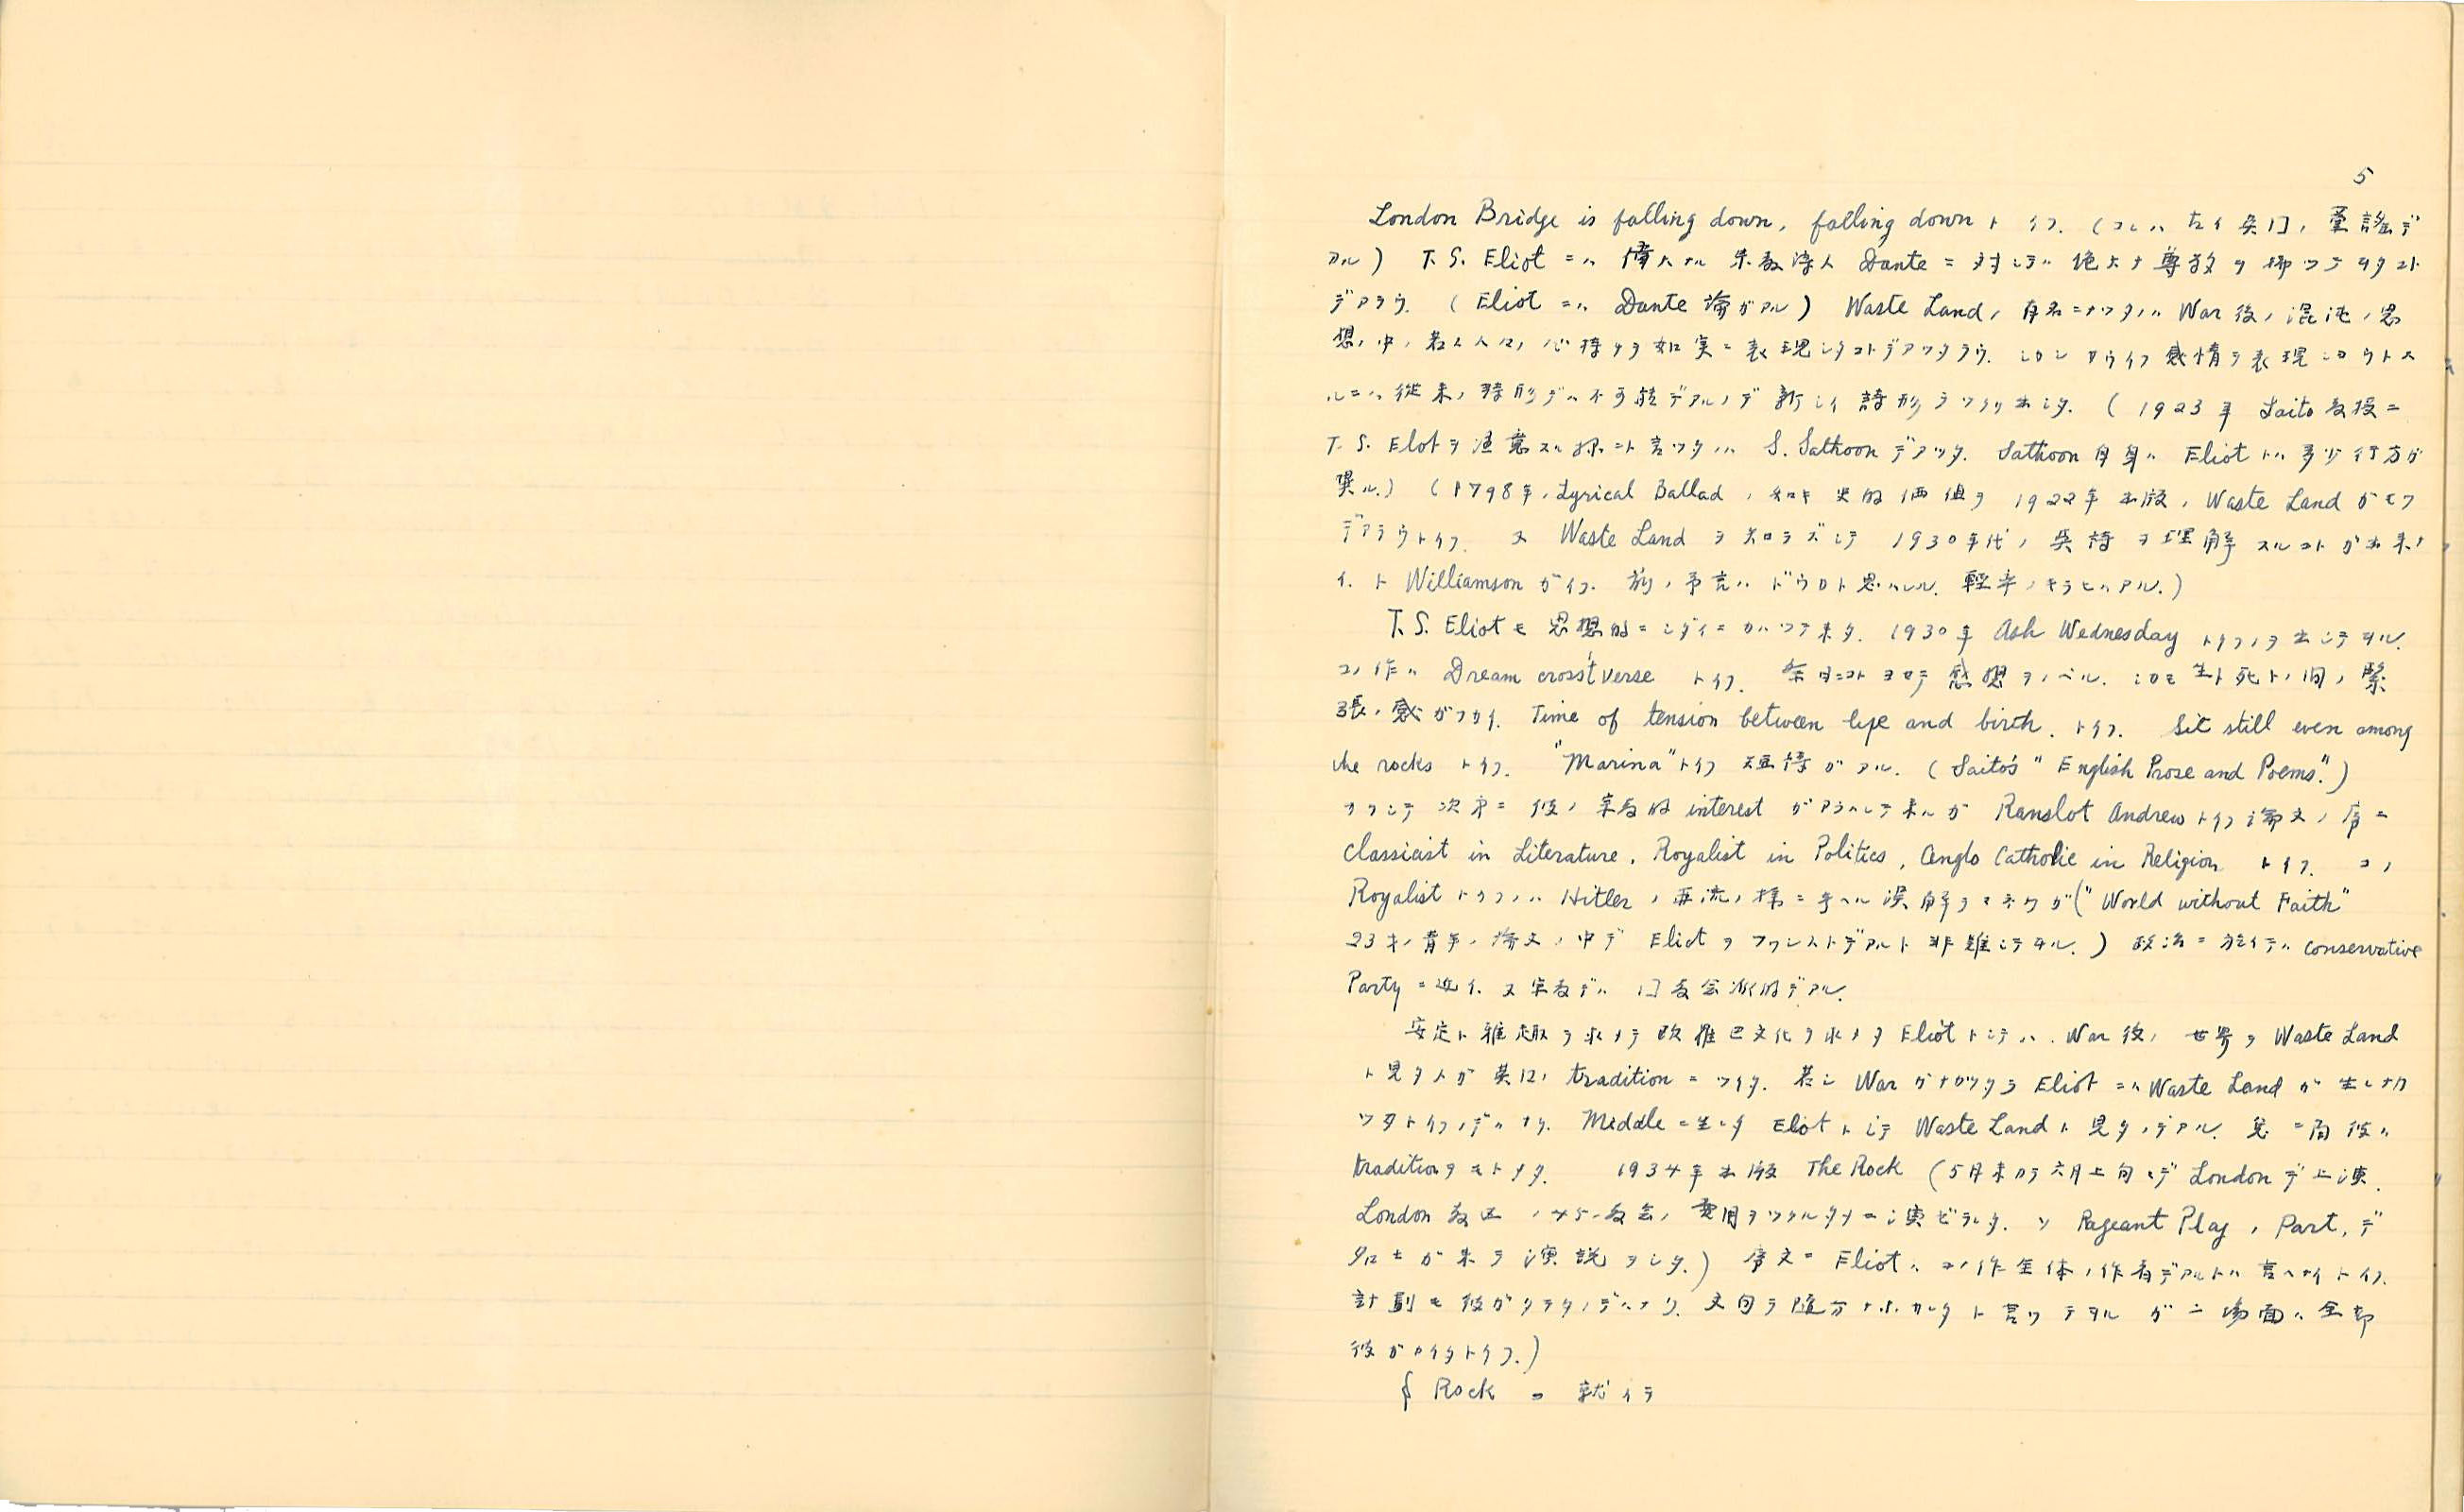 5
London Bridge is falling down, falling down ト イフ. (コレハ 古イ 英国ノ 童謡デ
アル) T. S. Eliot ニハ 偉大ナル 宗教詩人 Dante ニ対シテハ 絶大ナ尊敬ヲ 拂ツテヰタコト
デアラウ. (Eliot ニハ Dante 論ガアル) Waste Land ノ 有名ニナツタノハ War 後ノ 混沌ノ思
想ノ中ノ 若イ人々ノ 心持チヲ 如実ニ 表現シタコトデアツタラウ. シカシ サウイフ 感情ヲ 表現シヤウトス
ルニハ 従来ノ 詩形デハ 不可能デアルノデ 新シイ 詩形ヲ ツクリ出シタ. (1923年 Saito 教授ニ
T. S. Eliot ヲ 注意スル様ニト 言ツタノハ S. Sathoon デアツタ. Sathoon 自身ハ Eliot トハ 多少 行方ガ
異ル.) (1798年ノ Lyrical Ballad ノ 如キ 史的 価値ヲ 1922年 出版ノ Waste Land ガモツ
デアラウトイフ. 又 Waste Land ヲ 知ラズシテ 1930年代ノ 英詩ヲ 理解 スルコトガ出来ナ
イ. ト Williamson ガイフ. 前ノ 予言ハ ドウカト 思ハレル. 軽率ノキラヒハアル.)
T. S. Eliot モ 思想的ニ シダイニ カハツテ来タ. 1930年 Ash Wednesday トイフノヲ 出シテヰル.
コノ作ハ Dream cross't verse トイフ. 感想ヲノベル. シカモ 生ト死トノ間ノ 緊
張ノ感ガフカイ. Time of tension between life and birth. トイフ. Sit still even among
the rocks トイフ. "Marina" トイフ 短詩ガアル. (Saito's "English Prose and Poems".)
カクシテ 次第ニ 彼ノ 宗教的 interest ガアラハレテ来ルガ Ranslot Andrew トイフ 論文ノ 序ニ
Classicist in Literature, Royalist in Politics, Anglo Catholic in Religion トイフ. コノ
Royalist トイフノハ Hitler ノ 亜流ノ様ニ 考ヘル 誤解ヲマネクガ ("World without Faith"
23才ノ青年ノ 論文ノ中デ Eliot ヲ フアシストデアルト 非難シテヰル.) 政治ニ 於イテハ conservative
Party ニ近イ. 又 宗教デハ 国教会派的デアル.
安定ト 雅趣ヲ 求メテ 欧羅巴文化ヲ 求メタ Eliot トシテハ. War 後ノ 世界ヲ Waste Land
ト見タ人ガ 英国ノ tradition ニ ツイタ. 若シ War ガナカツタラ Eliot ニハ Waste Land ガ 生レナカ
ツタトイフノデハナイ. Middle ニ生レタ Eliot トシテ Waste Land ト 見タノデアル. 兎ニ角 彼ハ
tradition ヲ モトメタ. 1934年 出版 The Rock (5月末カラ 六月上旬マデ London デ 上演.
London 教区ノ 45ノ教会ノ 費用ヲツクルタメニ 演ゼラレタ. ソノ Pageant Play ノ Part デ
名士ガ来テ 演説ヲシタ.) 序文ニ Eliot ハ コノ作全体ノ作者デアルトハ 言ヘナイトイフ.
計劃モ 彼ガタテタノデハナク. 文句ヲ 随分ナホカシタト 言ツテヰルガ 一場面ハ 全部
彼ガカイタトイフ.)
§ Rock ニ 就イテ